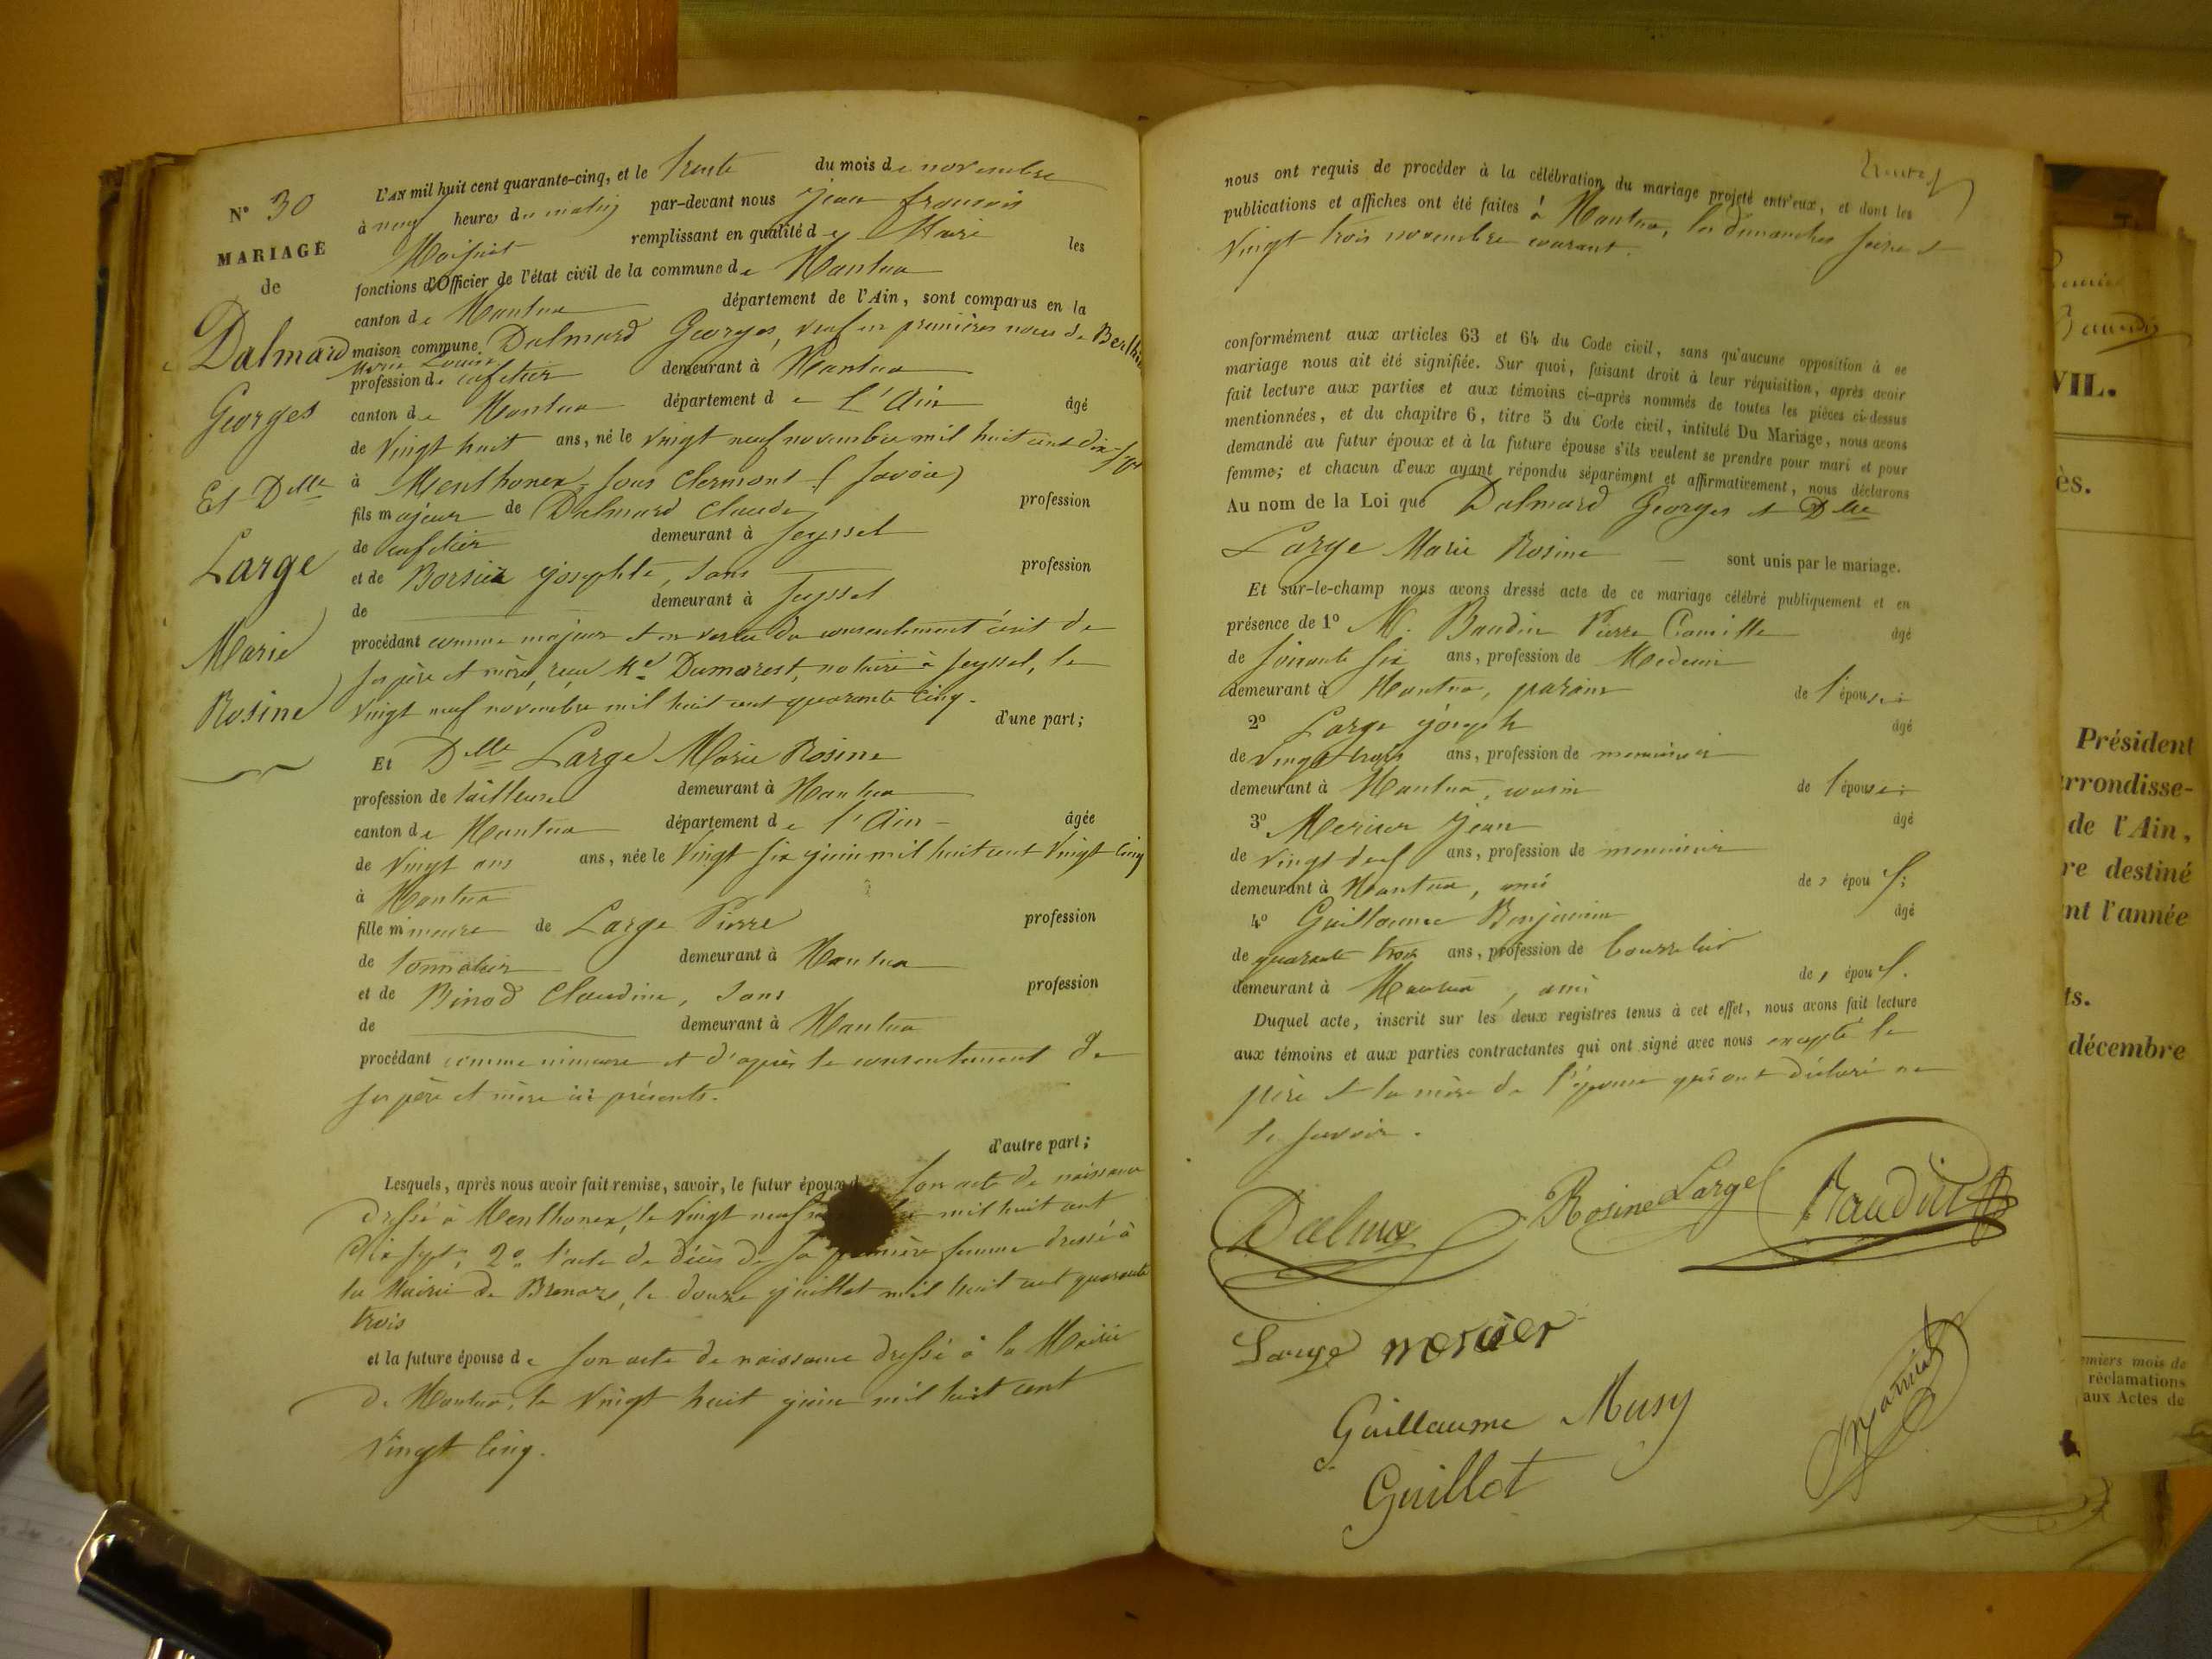 N° 30
MARIAGE
de
Dalmard
Georges
Et Delle
Large
Marie
Rosine
L'AN mil huit cent quarante-cinq, et le trente du mois de novembre
à neuf heures du matin par-devant nous Jean françois
remplissant en qualité de Maire les
fonctions d'Officier de l'état civil de la commune de Nantua
canton de Nantua département de l'Ain, sont comparus en la
maison commune Dalmard Georges, veuf en premières noces de
Marie Louise
profession de cafetier demeurant à Nantua
canton de Nantua département de l'Ain âgé
de Vingt huit ans, né le vingt neuf novembre mil huit cent dix-sept
à Menthonex, sous Clermont (Savoie)
fils majeur de Dalmard Claude profession
de cafetier demeurant à Seyssel
et de Borsier josephte, sans profession
de demeurant à Seyssel
procédant comme majeur et en vertu du consentement écrit de
ses père et mère, reçu Me Dumarest, notaire à Seyssel, le
vingt neuf novembre mil huit cent quarante cinq.
d'une part;
Et Delle Large Marie Rosine
profession de tailleuse demeurant à Nantua
canton de Nantua département de l'Ain âgée
de Vingt ans ans, née le Vingt six juin mil huit cent Vingt cinq
à Nantua
fille mineure de Large Pierre profession
de tonnelier demeurant à Nantua
et de Binod Claudine, sans profession
de demeurant à Nantua
procédant comme mineure et d'après le consentement de
ses père et mère ici présents.
d'autre part;
Lesquels, après nous avoir fait remise, savoir, le futur époux de son acte de naissance
dressé à Menthonex, le Vingt neuf mil huit cent
dix sept; 2° l'acte de décès de sa première femme dressé à
la Mairie de Brenaz, le douze juillet mil huit cent quarante
trois
et la future épouse de son acte de naissance dressé à la Mairie
de Nantua, le Vingt huit juin mil huit cent
Vingt cinq.
nous ont requis de procéder à la célébration du mariage projeté entr'eux, et dont les
publications et affiches ont été faites à Nantua, les dimanches seize et
Vingt trois novembre courant.
conformément aux articles 63 et 64 du Code civil, sans qu'aucune opposition à ce
mariage nous ait été signifiée. Sur quoi, faisant droit à leur réquisition, après avoir
fait lecture aux parties et aux témoins ci-après nommés de toutes les pièces ci-dessus
mentionnées, et du chapitre 6, titre 5 du Code civil, intitulé Du Mariage, nous avons
demandé au futur époux et à la future épouse s'ils veulent se prendre pour mari et pour
femme; et chacun d'eux ayant répondu séparément et affirmativement, nous déclarons
Au nom de la Loi que Dalmard Georges et Delle
Large Marie Rosine sont unis par le mariage.
Et sur-le-champ nous avons dressé acte de ce mariage célébré publiquement et en
présence de 1° M. Baudin Pierre Camille âgé
de soixante six ans, profession de Medecin
demeurant à Nantua, parain de l'épouse
2° Large joseph âgé
de vingt trois ans, profession de menuisier
demeurant à Nantua, cousin de l'épouse
3° Mercier Jean âgé
de vingt neuf ans, profession de menuisier
demeurant à Nantua, ami des époux
4° Guillaume Benjamin âgé
de quarante trois ans, profession de bourrelier
demeurant à Nantua, ami des époux
Duquel acte, inscrit sur les deux registres tenus à cet effet, nous avons fait lecture
aux témoins et aux parties contractantes qui ont signé avec nous excepté le
père et la mère de l'épouse qui ont déclaré ne
le savoir.
Rosine Large Baudin
Large mercier
Guillaume Musy
Guillot
VIL.
ès.
Président
arrondisse-
de l'Ain,
re destiné
nt l'année
ts.
décembre
miers mois de
réclamations
aux Actes de